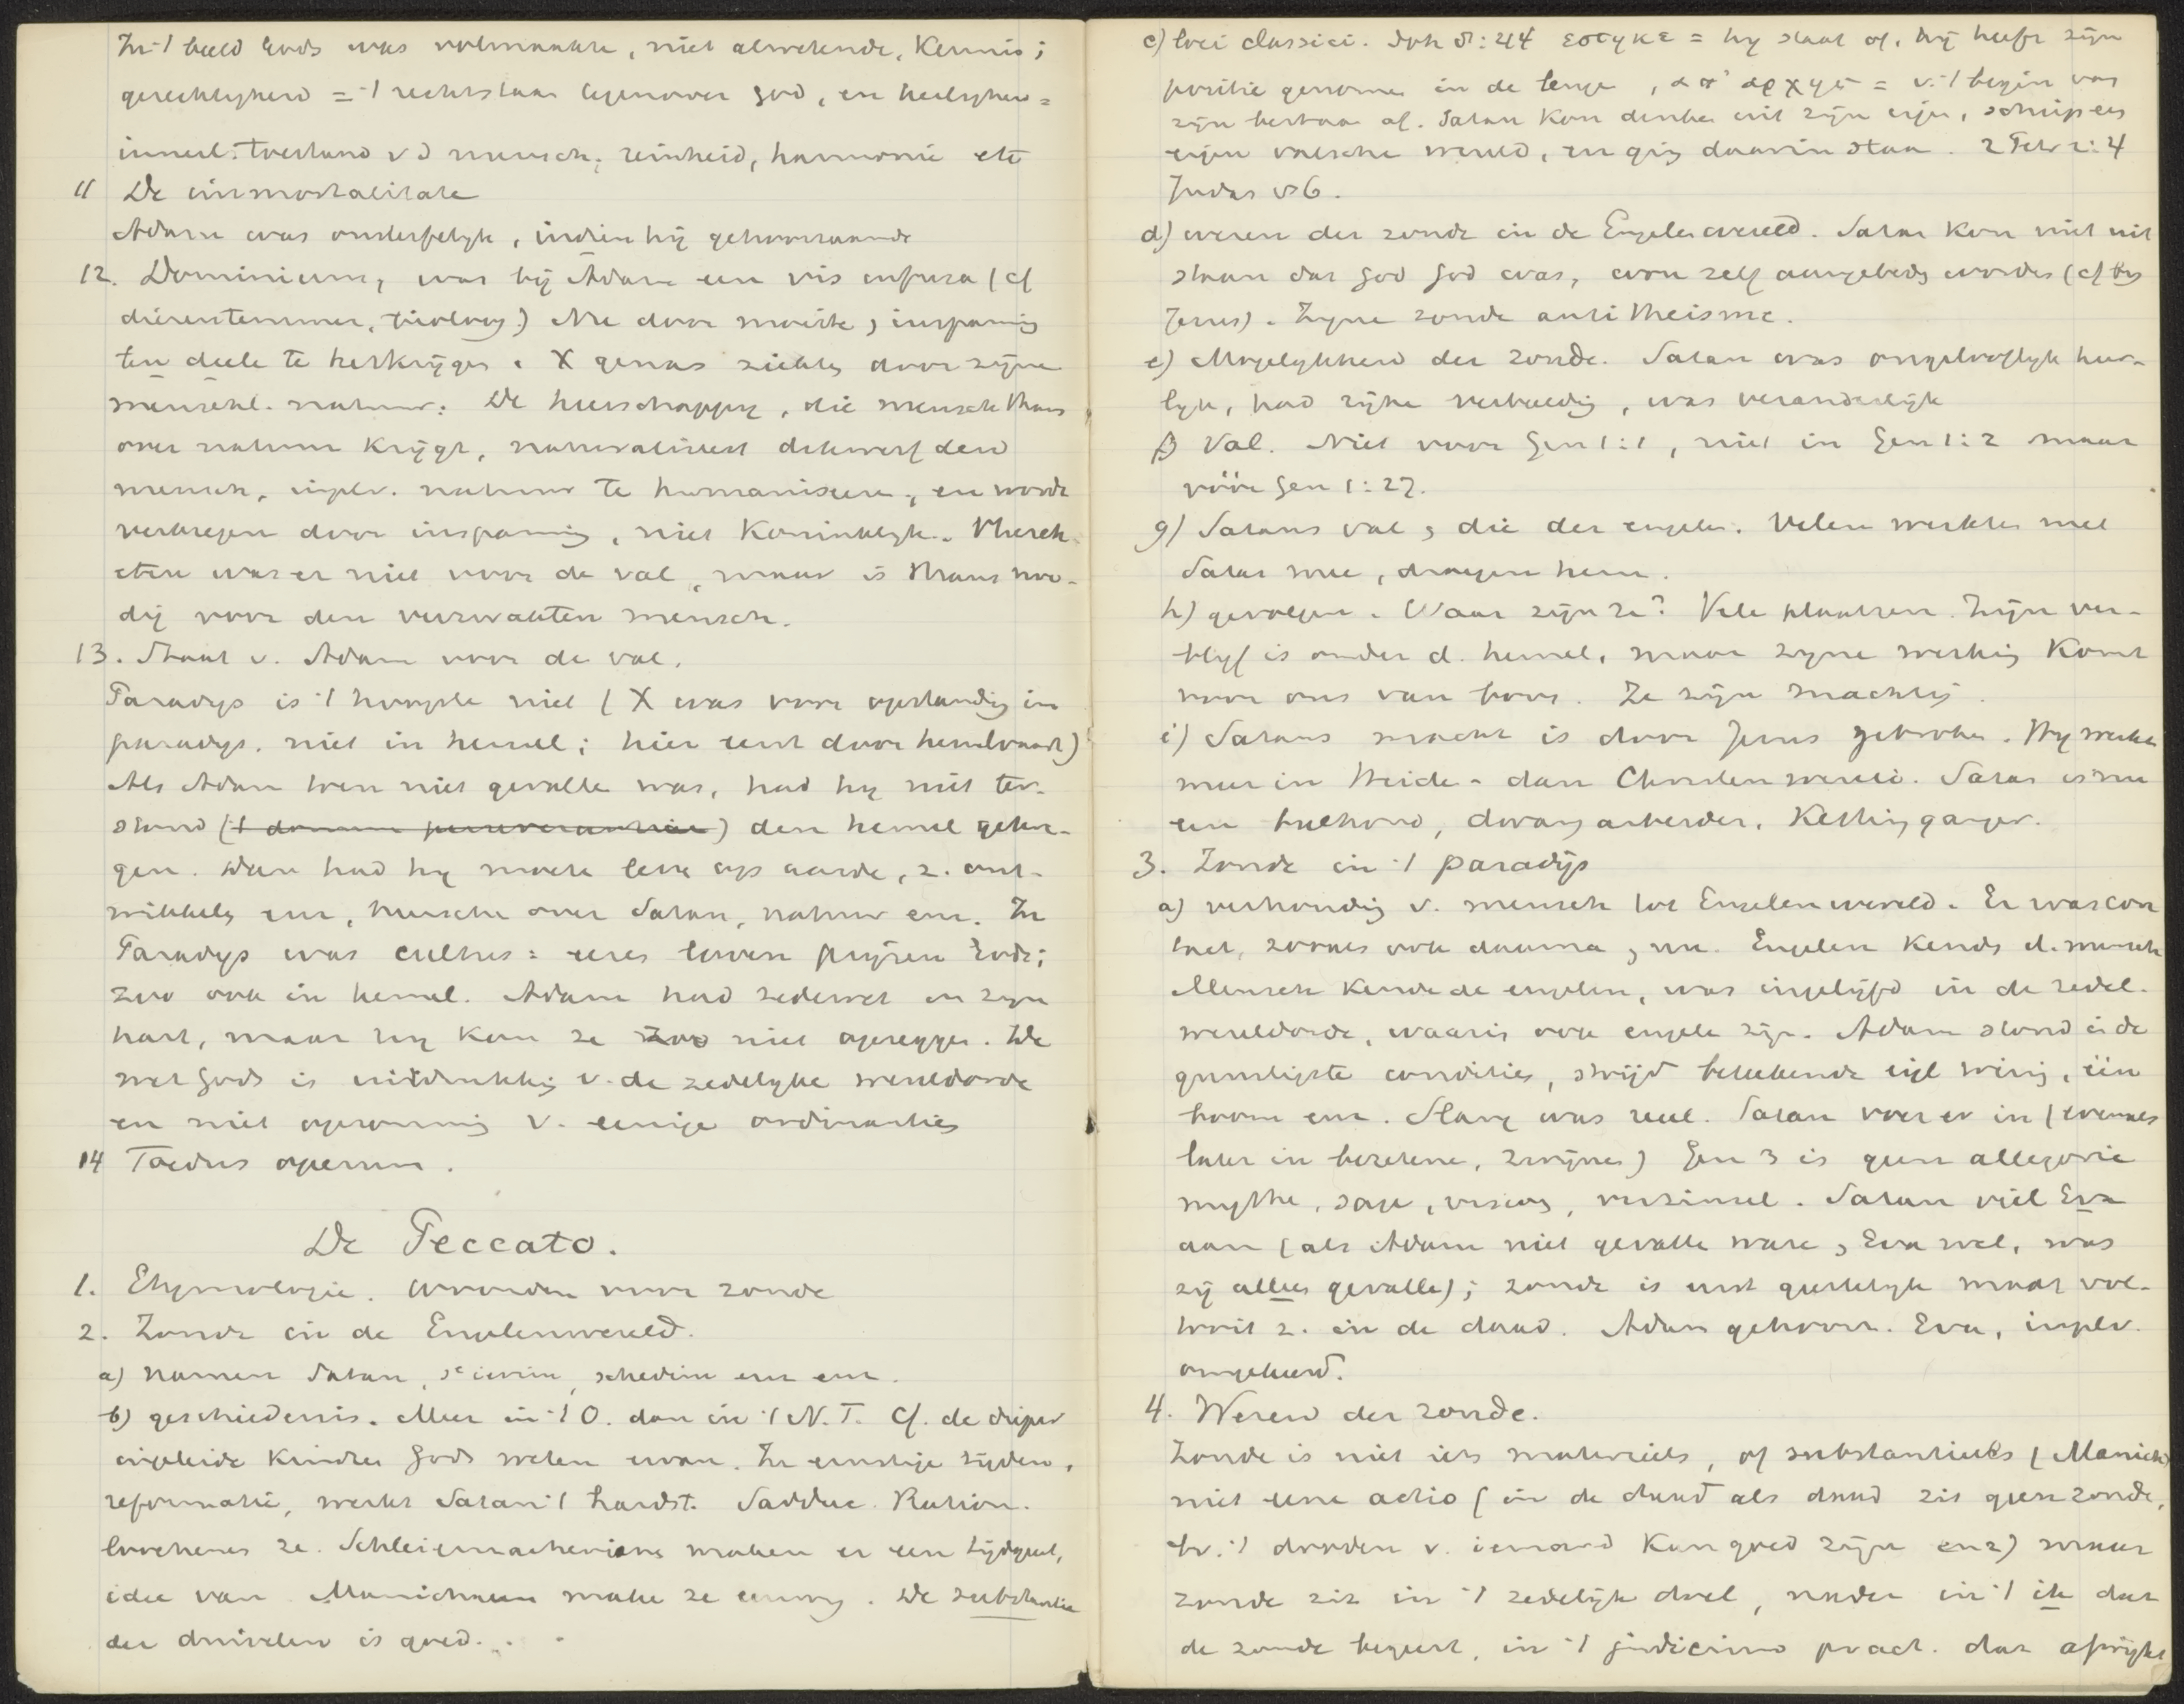 In 't beeld Gods was volmaakte, niet alwetende, Kennis;
gerechtigheid = 't rechtstaan tegenover God, en heiligheid =
innerl. toestand v d mensch; reinheid, harmonie etc
11 De immortalitate
Adam was onsterfelyk, indien hij gehoorzaamde
12. Dominium, was bij Adam een vis infusa (cf
dierentemmer, ) Nu door moeite, inspanning
ten deele te herkrijgen. X genas ziekten door zijne
menschl. natuur. De heerschappij, die mensch thans
over natuur krijgt, naturaliseert dikwerf den
mensch, inplv. natuur te humaniseeren, en wordt
verkregen door inspanning, niet Koninklyk. Vleesch
eten was er niet voor de val, maar is thans noo-
dig voor den verzwakten mensch.
13. Staat v. Adam voor de val.
Paradijs is 't hoogste niet (X was voor opstanding in
paradijs, niet in hemel; hier eerst door hemelvaart)
Als Adam toen niet gevallen was, had hy niet ter-
stond ('t donum perseverantiae) den hemel gekre-
gen. Dan had hy moeten leven op aarde, z. ont-
wikkelen enz, heerschen over Satan, natuur enz. In
Paradys was cultus: eeren loven prijzen Gods;
zoo ook in hemel. Adam had zedewet in zyn
hart, maar hy kon ze zoo niet opzeggen. De
wet Gods is uitdrukking v. de zedelyke wereldorde
en niet opsomming v. eenige ordinantiën
14 Foedus operum.
De Peccato.
1. Etymologie. Woorden voor zonde
2. Zonde in de Engelenwereld.
a) namen Satan, seïrim, schedim enz enz.
b) geschiedenis. Meer in 't O. dan in 't N.T. Cf. de dieper
ingeleide kinderen Gods weten ervan. In ernstige tijden,
reformatie, werkt Satan 't hardst. Sadduc. Ration.
loochenen ze. Schleiermacherianen maken er een tijdgeest,
idee van. Manichaeën maken ze eeuwig. De substantie
der duivelen is goed.
c) loci classici. Joh 8:44 εστηκε = hy staat op, hij heeft zijn
positie genomen in de leugen, απ' αρχης = v. 't begin van
zijn bestaan af. Satan kon denken uit zijn eigen, schiep een
eigen valsche wereld, en ging daarin staan. 2 Petr 2:4
Judas vs 6.
d) wezen der zonde in de Engelenwereld. Satan kon niet uit
staan dat God God was, wou zelf aangebeden worden (cf by
Jezus). Zijne zonde antitheïsme.
e) Mogelykheid der zonde. Satan was ongelooflyk heer-
lyk, had zijne verleiding, was veranderlijk
f) Val. Niet voor Gen 1:1, niet in Gen 1:2 maar
vóór Gen 1:27.
g) Satans val, die der engelen. Velen werkten met
Satan mee, droegen hem.
h) gevolgen. Waar zijn ze? Vele plaatsen. Zijn ver-
blyf is onder d. hemel, maar zyne werking komt
voor ons van boven. Ze zijn machtig.
i) Satans macht is door Jezus gebroken. Hy werkt
meer in Heiden- dan Christenwereld. Satan is nu
een bulhond, dwangarbeider, Kettingganger.
3. Zonde in 't paradijs
a) verhouding v. mensch tot Engelenwereld. Er was con
tact, zooals ook daarna, nu. Engelen kenden d. mensch
Mensch kende de engelen, was ingelijfd in de zedel.
wereldorde, waarin ook engelen zijn. Adam stond in de
gunstigste condities, strijd beteekende wing, één
boom enz. Slang was reëel. Satan voer er in (evenals
later in bezetene, zwijnen) Gen 3 is geen allegorie
mythe, sage, visioen, verzinsel. Satan viel Eva
aan (als Adam niet gevallen ware, Eva wel, was
zij alleen gevallen); zonde is eerst geestelyk maar vol-
tooit z. in de daad. Adam gehoorz. Eva, inplv.
omgekeerd.
4. Wezen der zonde.
Zonde is niet iets materieels, of substantieels (Manich)
niet eene actio (in de daad als daad zit geen zonde,
bv. 't dooden v. iemand kan goed zijn enz) maar
zonde zit in 't zedelijk doel, nader in 't ik dat
de zonde begeert, in 't judicium pract. dat afwijkt